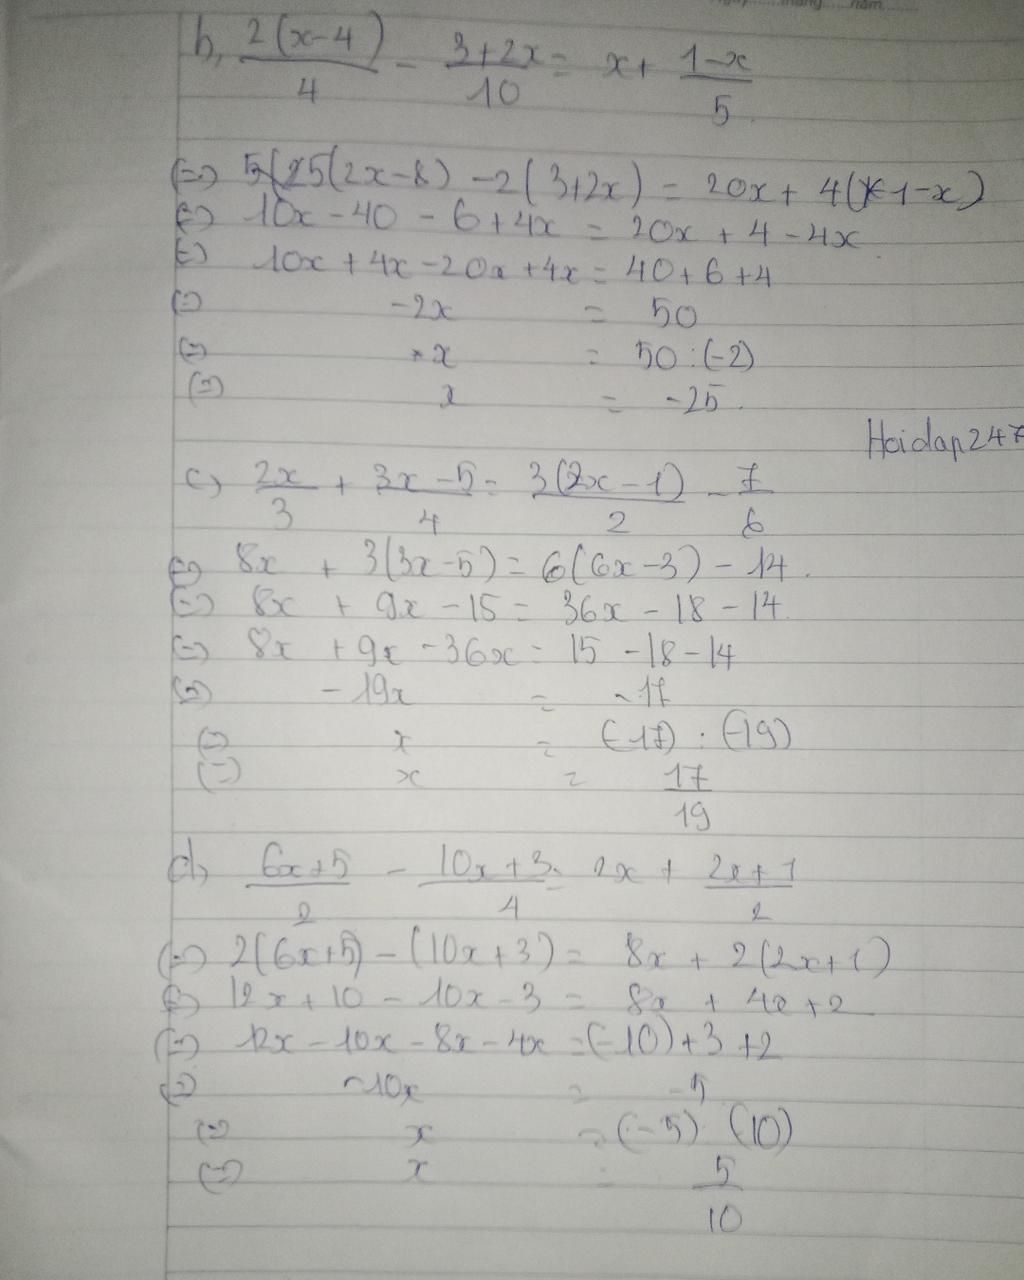 tháng.....năm.......
b, 2(x-4)/4 - 3+2x/10 = x + 1-x/5
(=) 5(2x-8) - 2(3+2x) = 20x + 4(1-x)
(=) 10x - 40 - 6 + 4x = 20x + 4 - 4x
(=) 10x + 4x - 20x + 4x = 40 + 6 + 4
(=) -2x = 50
(=) x = 50 : (-2)
(=) x = -25.
Hoidap247
c) 2x/3 + 3x-5/4 = 3(2x-1)/2 - 7/6
(=) 8x + 3(3x-5) = 6(6x-3) - 14.
(=) 8x + 9x - 15 = 36x - 18 - 14
(=) 8x + 9x - 36x = 15 - 18 - 14
(=) -19x = -17
(=) x = (-17) : (-19)
(=) x = 17/19
d, 6x+5/2 - 10x+3/4 = 2x + 2x+1/2
(=) 2(6x+5) - (10x+3) = 8x + 2(2x+1)
(=) 12x + 10 - 10x - 3 = 8x + 4x + 2
(=) 12x - 10x - 8x - 4x = (-10) + 3 + 2
(=) -10x = -5
(=) x = (-5) (10)
(=) x = 5/10